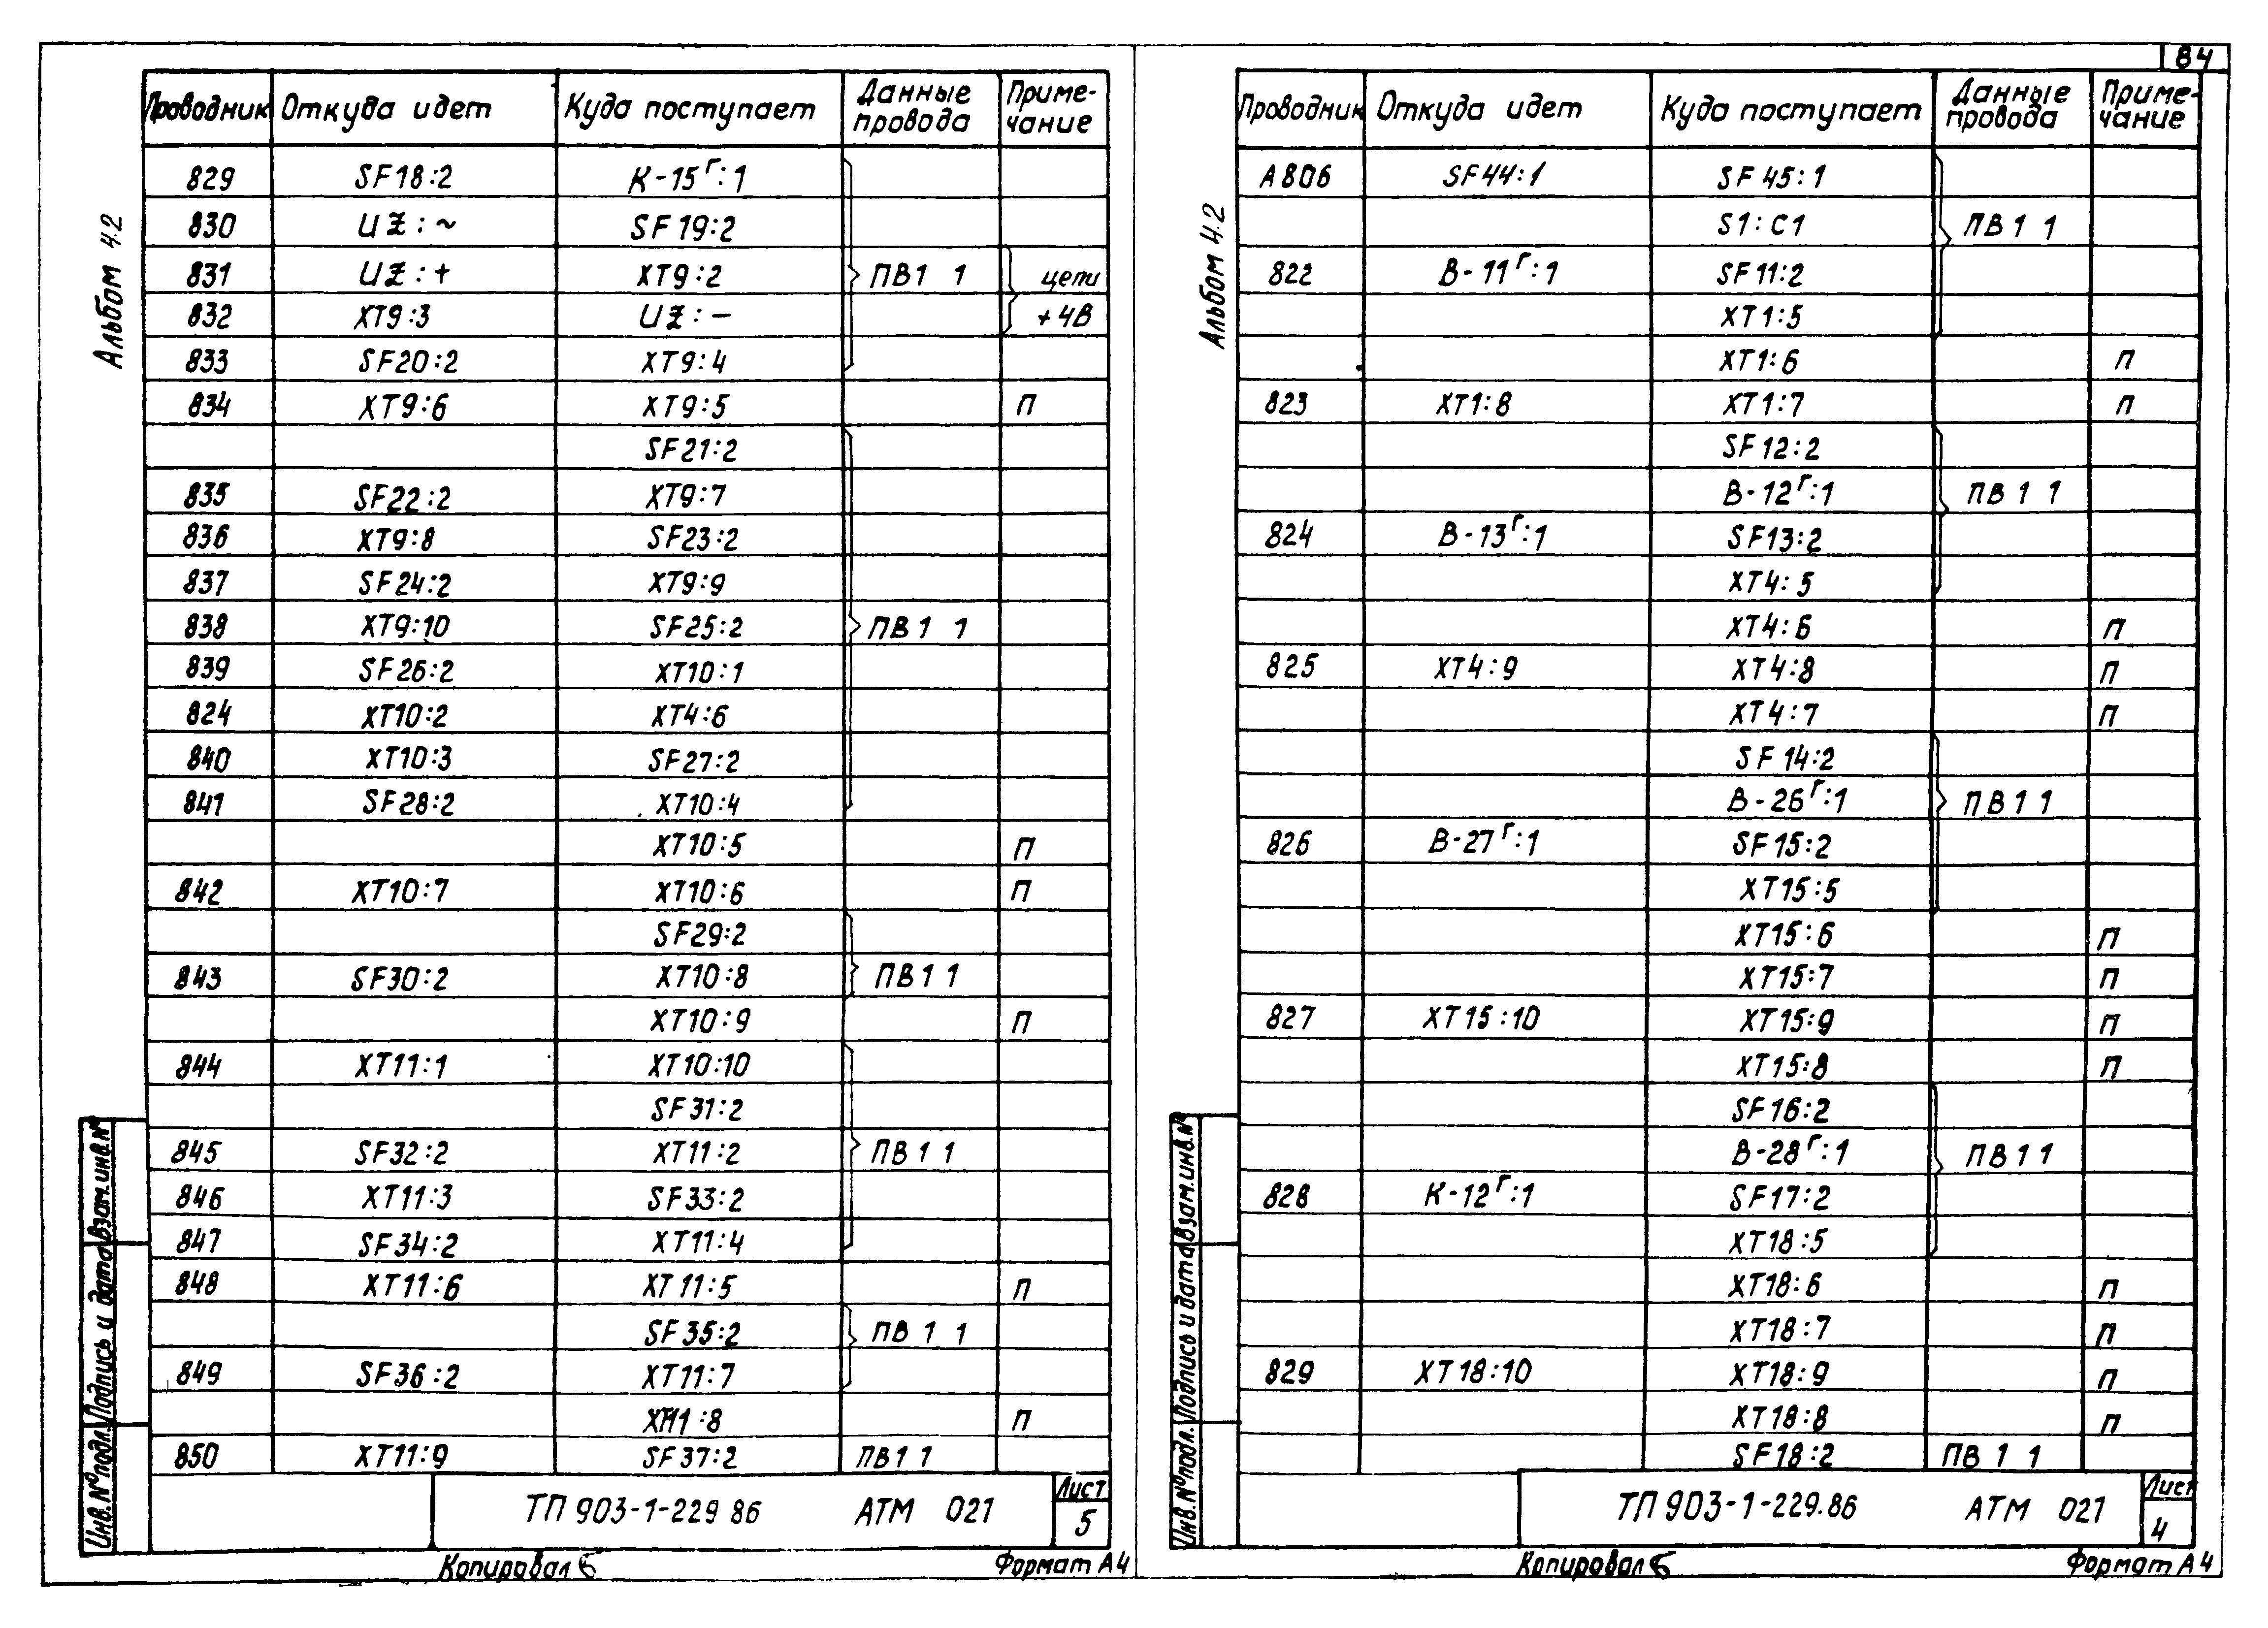 84
Альбом 4.2
Проводник Откуда идет Куда поступает Данные провода Приме-чание
829 SF18:2 К-15Г:1
830 UZ:~ SF19:2
831 UZ:+ XT9:2 ПВ1 1 цепи
832 XT9:3 UZ:- +4В
833 SF20:2 XT9:4
834 XT9:6 XT9:5 П
SF21:2
835 SF22:2 XT9:7
836 XT9:8 SF23:2
837 SF24:2 XT9:9
838 XT9:10 SF25:2 ПВ1 1
839 SF26:2 XT10:1
824 XT10:2 XT4:6
840 XT10:3 SF27:2
841 SF28:2 XT10:4
XT10:5 П
842 XT10:7 XT10:6 П
SF29:2
843 SF30:2 XT10:8 ПВ1 1
XT10:9 П
844 XT11:1 XT10:10
SF31:2
845 SF32:2 XT11:2 ПВ1 1
846 XT11:3 SF33:2
847 SF34:2 XT11:4
848 XT11:6 XT11:5 П
SF35:2 ПВ1 1
849 SF36:2 XT11:7
XT11:8 П
850 XT11:9 SF37:2 ПВ1 1
Инв.№подл. Подпись и дата Взам.инв.№
ТП 903-1-229 86 АТМ 021
Лист
5
Копировал
Формат А4
Альбом 4.2
Проводник Откуда идет Куда поступает Данные провода Приме-чание
А806 SF44:1 SF45:1
S1:C1 ПВ1 1
822 В-11Г:1 SF11:2
XT1:5
XT1:6 П
823 XT1:8 XT1:7 П
SF12:2
В-12Г:1 ПВ1 1
824 В-13Г:1 SF13:2
XT4:5
XT4:6 П
825 XT4:9 XT4:8 П
XT4:7 П
SF14:2
В-26Г:1 ПВ1 1
826 В-27Г:1 SF15:2
XT15:5
XT15:6 П
XT15:7 П
827 XT15:10 XT15:9 П
XT15:8 П
SF16:2
В-28Г:1 ПВ1 1
828 К-12Г:1 SF17:2
XT18:5
XT18:6 П
XT18:7 П
829 XT18:10 XT18:9 П
XT18:8 П
SF18:2 ПВ1 1
Инв.№подл. Подпись и дата Взам.инв.№
ТП 903-1-229.86 АТМ 021
Лист
4
Копировал
Формат А4